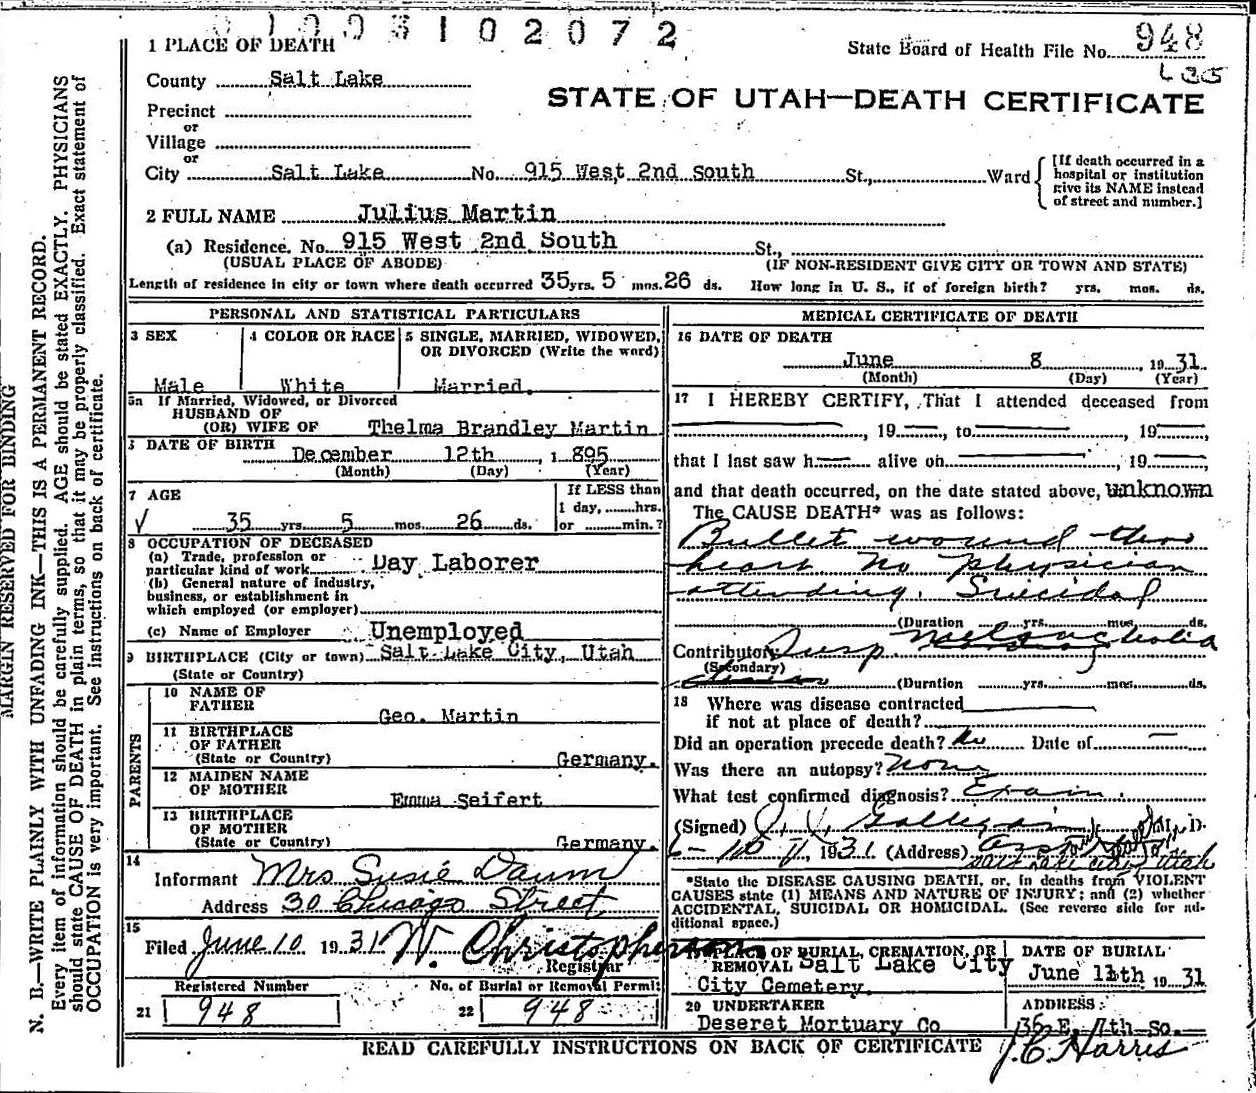 0 1 0 0 3 1 0 2 0 7 2
State Board of Health File No. 948
STATE OF UTAH—DEATH CERTIFICATE
1 PLACE OF DEATH
County Salt Lake
Precinct
or
Village
or
City Salt Lake No. 915 West 2nd South St., Ward
[If death occurred in a
hospital or institution
give its NAME instead
of street and number.]
2 FULL NAME Julius Martin
(a) Residence. No. 915 West 2nd South St.,
(USUAL PLACE OF ABODE) (IF NON-RESIDENT GIVE CITY OR TOWN AND STATE)
Length of residence in city or town where death occurred 35 yrs. 5 mos. 26 ds. How long in U. S., if of foreign birth? yrs. mos. ds.
PERSONAL AND STATISTICAL PARTICULARS
3 SEX
Male
4 COLOR OR RACE
White
5 SINGLE, MARRIED, WIDOWED,
OR DIVORCED (Write the word)
Married.
5a If Married, Widowed, or Divorced
HUSBAND OF
(OR) WIFE OF Thelma Brandley Martin
DATE OF BIRTH
December 12th , 1 895
(Month) (Day) (Year)
7 AGE
35 yrs. 5 mos. 26 ds.
If LESS than
1 day, hrs.
or min.?
8 OCCUPATION OF DECEASED
(a) Trade, profession or
particular kind of work Day Laborer
(b) General nature of industry,
business, or establishment in
which employed (or employer)
(c) Name of Employer Unemployed
9 BIRTHPLACE (City or town) Salt Lake City, Utah
(State or Country)
PARENTS
10 NAME OF
FATHER
Geo. Martin
11 BIRTHPLACE
OF FATHER
(State or Country) Germany.
12 MAIDEN NAME
OF MOTHER
Emma Seifert
13 BIRTHPLACE
OF MOTHER
(State or Country) Germany.
14
Informant Mrs Susie Daum
Address 30 Chicago Street
15
Filed June 10 1931 W. Christopherson
Registrar
Registered Number No. of Burial or Removal Permit
21 948 22 948
MEDICAL CERTIFICATE OF DEATH
16 DATE OF DEATH
June 8 , 19 31.
(Month) (Day) (Year)
17 I HEREBY CERTIFY, That I attended deceased from
, 19 , to , 19 ,
that I last saw h alive on , 19 ,
and that death occurred, on the date stated above, unknown
The CAUSE DEATH* was as follows:
Bullet wound thro
heart No physician
attending. Suicidal
(Duration yrs. mos. ds.
Contributory
(Secondary)
(Duration yrs. mos. ds.
18 Where was disease contracted
if not at place of death?
Did an operation precede death? No Date of
Was there an autopsy? None
What test confirmed diagnosis? Exam.
(Signed) M. D.
1931 (Address)
Salt Lake City Utah
*State the DISEASE CAUSING DEATH, or, in deaths from VIOLENT
CAUSES state (1) MEANS AND NATURE OF INJURY; and (2) whether
ACCIDENTAL, SUICIDAL OR HOMICIDAL. (See reverse side for ad-
ditional space.)
19 PLACE OF BURIAL, CREMATION, OR
REMOVAL Salt Lake City
City Cemetery.
DATE OF BURIAL
June 11th 19 31
20 UNDERTAKER
Deseret Mortuary Co
ADDRESS
36 E. 7th So.
J. C. Harris
READ CAREFULLY INSTRUCTIONS ON BACK OF CERTIFICATE
MARGIN RESERVED FOR BINDING
N. B.—WRITE PLAINLY WITH UNFADING INK—THIS IS A PERMANENT RECORD.
Every item of information should be carefully supplied. AGE should be stated EXACTLY. PHYSICIANS
should state CAUSE OF DEATH in plain terms, so that it may be properly classified. Exact statement of
OCCUPATION is very important. See instructions on back of certificate.